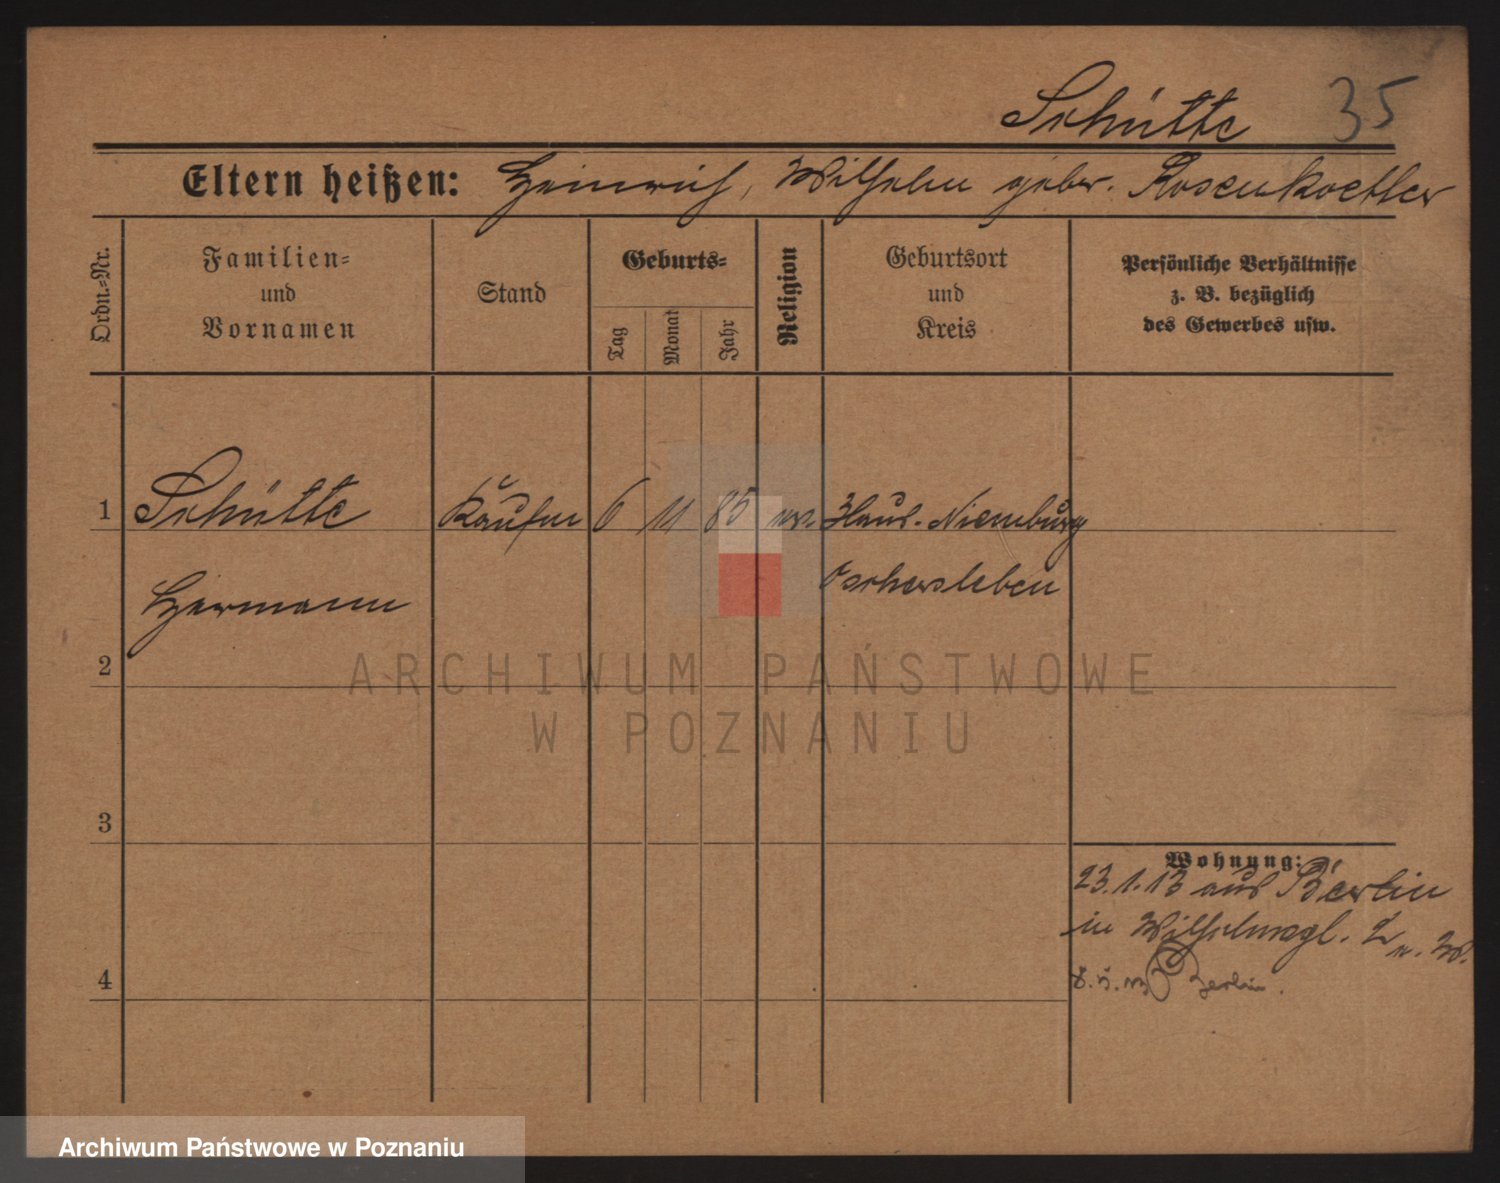 Schütte 35
Eltern heißen: Heinrich, Wilhelm gebr. Rosenkoetter
Ordn.-Nr.
Familien-
und
Vornamen
Stand
Geburts-
Tag
Monat
Jahr
Religion
Geburtsort
und
Kreis
Persönliche Verhältnisse
z. B. bezüglich
des Gewerbes usw.
1 Schütte Kaufm 6 11 85 ev. Haus. Niemburg
Oschersleben
Hermann
2
3
4
Wohnung:
23.1.13 aus Berlin
in Wilhelmspl. 2
8.5.13 Berlin.
ARCHIWUM PAŃSTWOWE
W POZNANIU
Archiwum Państwowe w Poznaniu